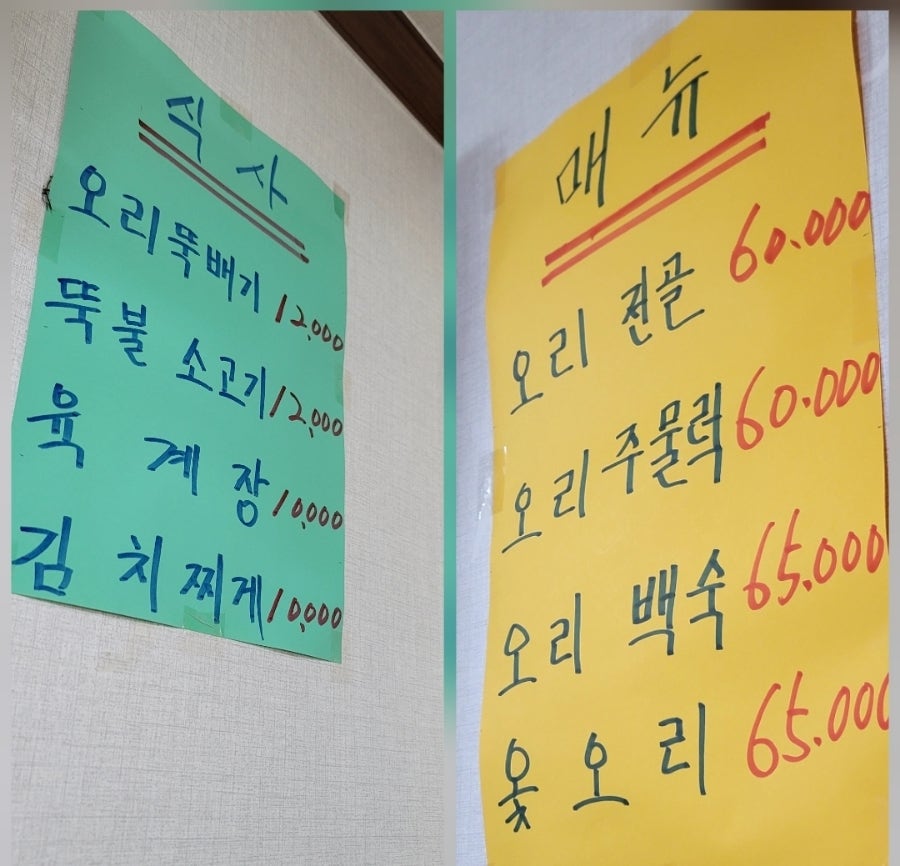 식사
오리뚝배기 12,000
뚝불 소고기 12,000
육계장 10,000
김치찌게 10,000
매뉴
오리 전골 60.000
오리 주물럭 60.000
오리 백숙 65.000
옻오리 65.000